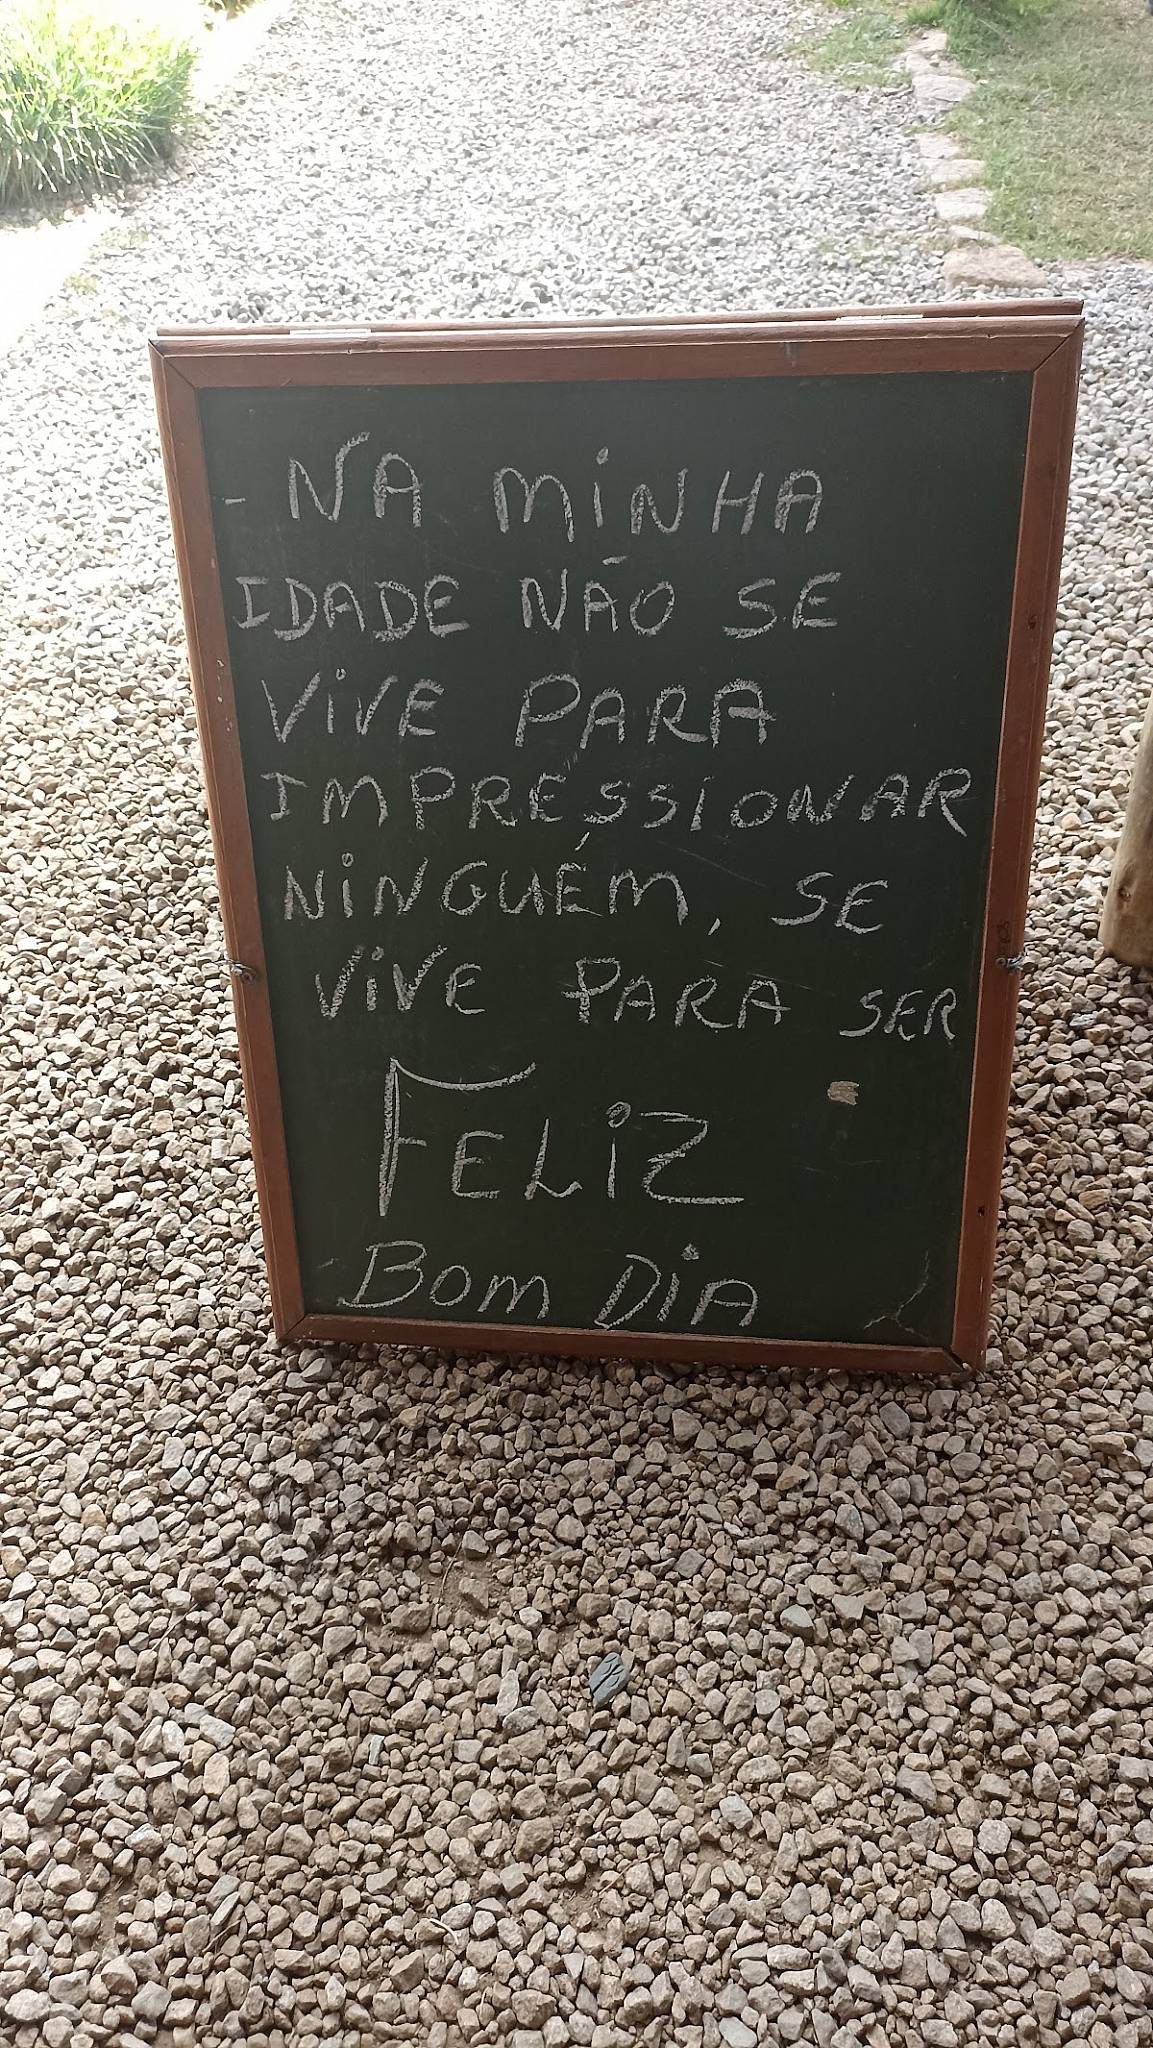 - NA MINHA
IDADE NÃO SE
VIVE PARA
IMPRESSIONAR
NINGUÉM, SE
VIVE PARA SER
FELIZ
- BOM DIA